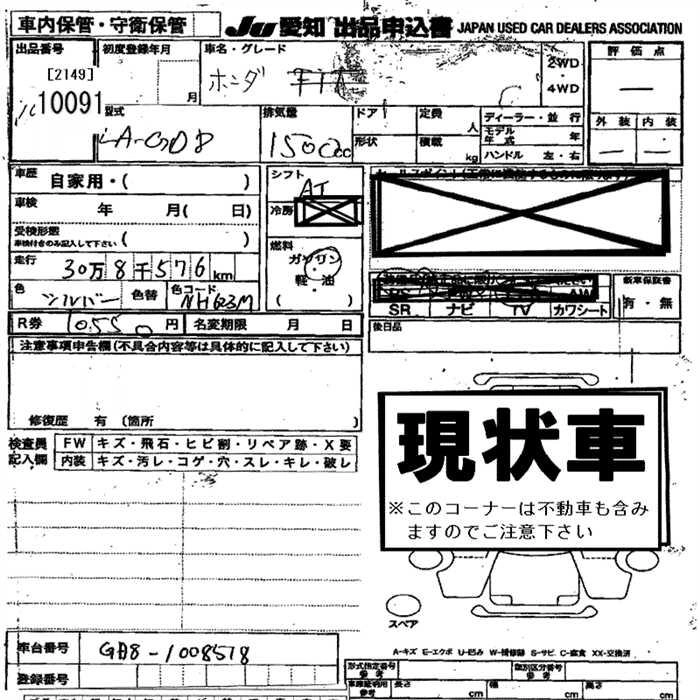 車内保管・守衛保管
JU 愛知 出品申込書 JAPAN USED CAR DEALERS ASSOCIATION
出品番号 初度登録年月 車名・グレード 評価点
[2149]
10091
月
ホンダ
2WD
・
4WD
型式 排気量 ドア 定員 ディーラー・並行
LA-GD8 1500cc 形状 積載 人 kg
モデル年式 年
ハンドル 左・右
外装 内装
車歴 自家用・( )
シフト AT
車検 年 月( 日)
冷房
受検形態
車検付きのみ記入して下さい ( )
燃料 ガソリン
軽・油
( )
走行 30万8千576km
色 シルバー 色替 色コード NH623M
SR ナビ TV カワシート
新車保証書
有・無
R券 10.550円 名変期限 月 日
後日品
注意事項申告欄(不具合内容等は具体的に記入して下さい)
修復歴 有 (箇所 )
検査員 FW キズ・飛石・ヒビ割・リペア跡・X要
記入欄 内装 キズ・汚レ・コゲ・穴・スレ・キレ・破レ
現状車
※このコーナーは不動車も含み
ますのでご注意下さい
スペア
A-キズ E-エクボ U-凹み W-補修跡 S-サビ C-腐食 XX-交換済
車台番号 GD8-1008518
登録番号
形式指定番号 参考 類別区分番号 参考
参考 長さ cm 幅 cm 高さ cm